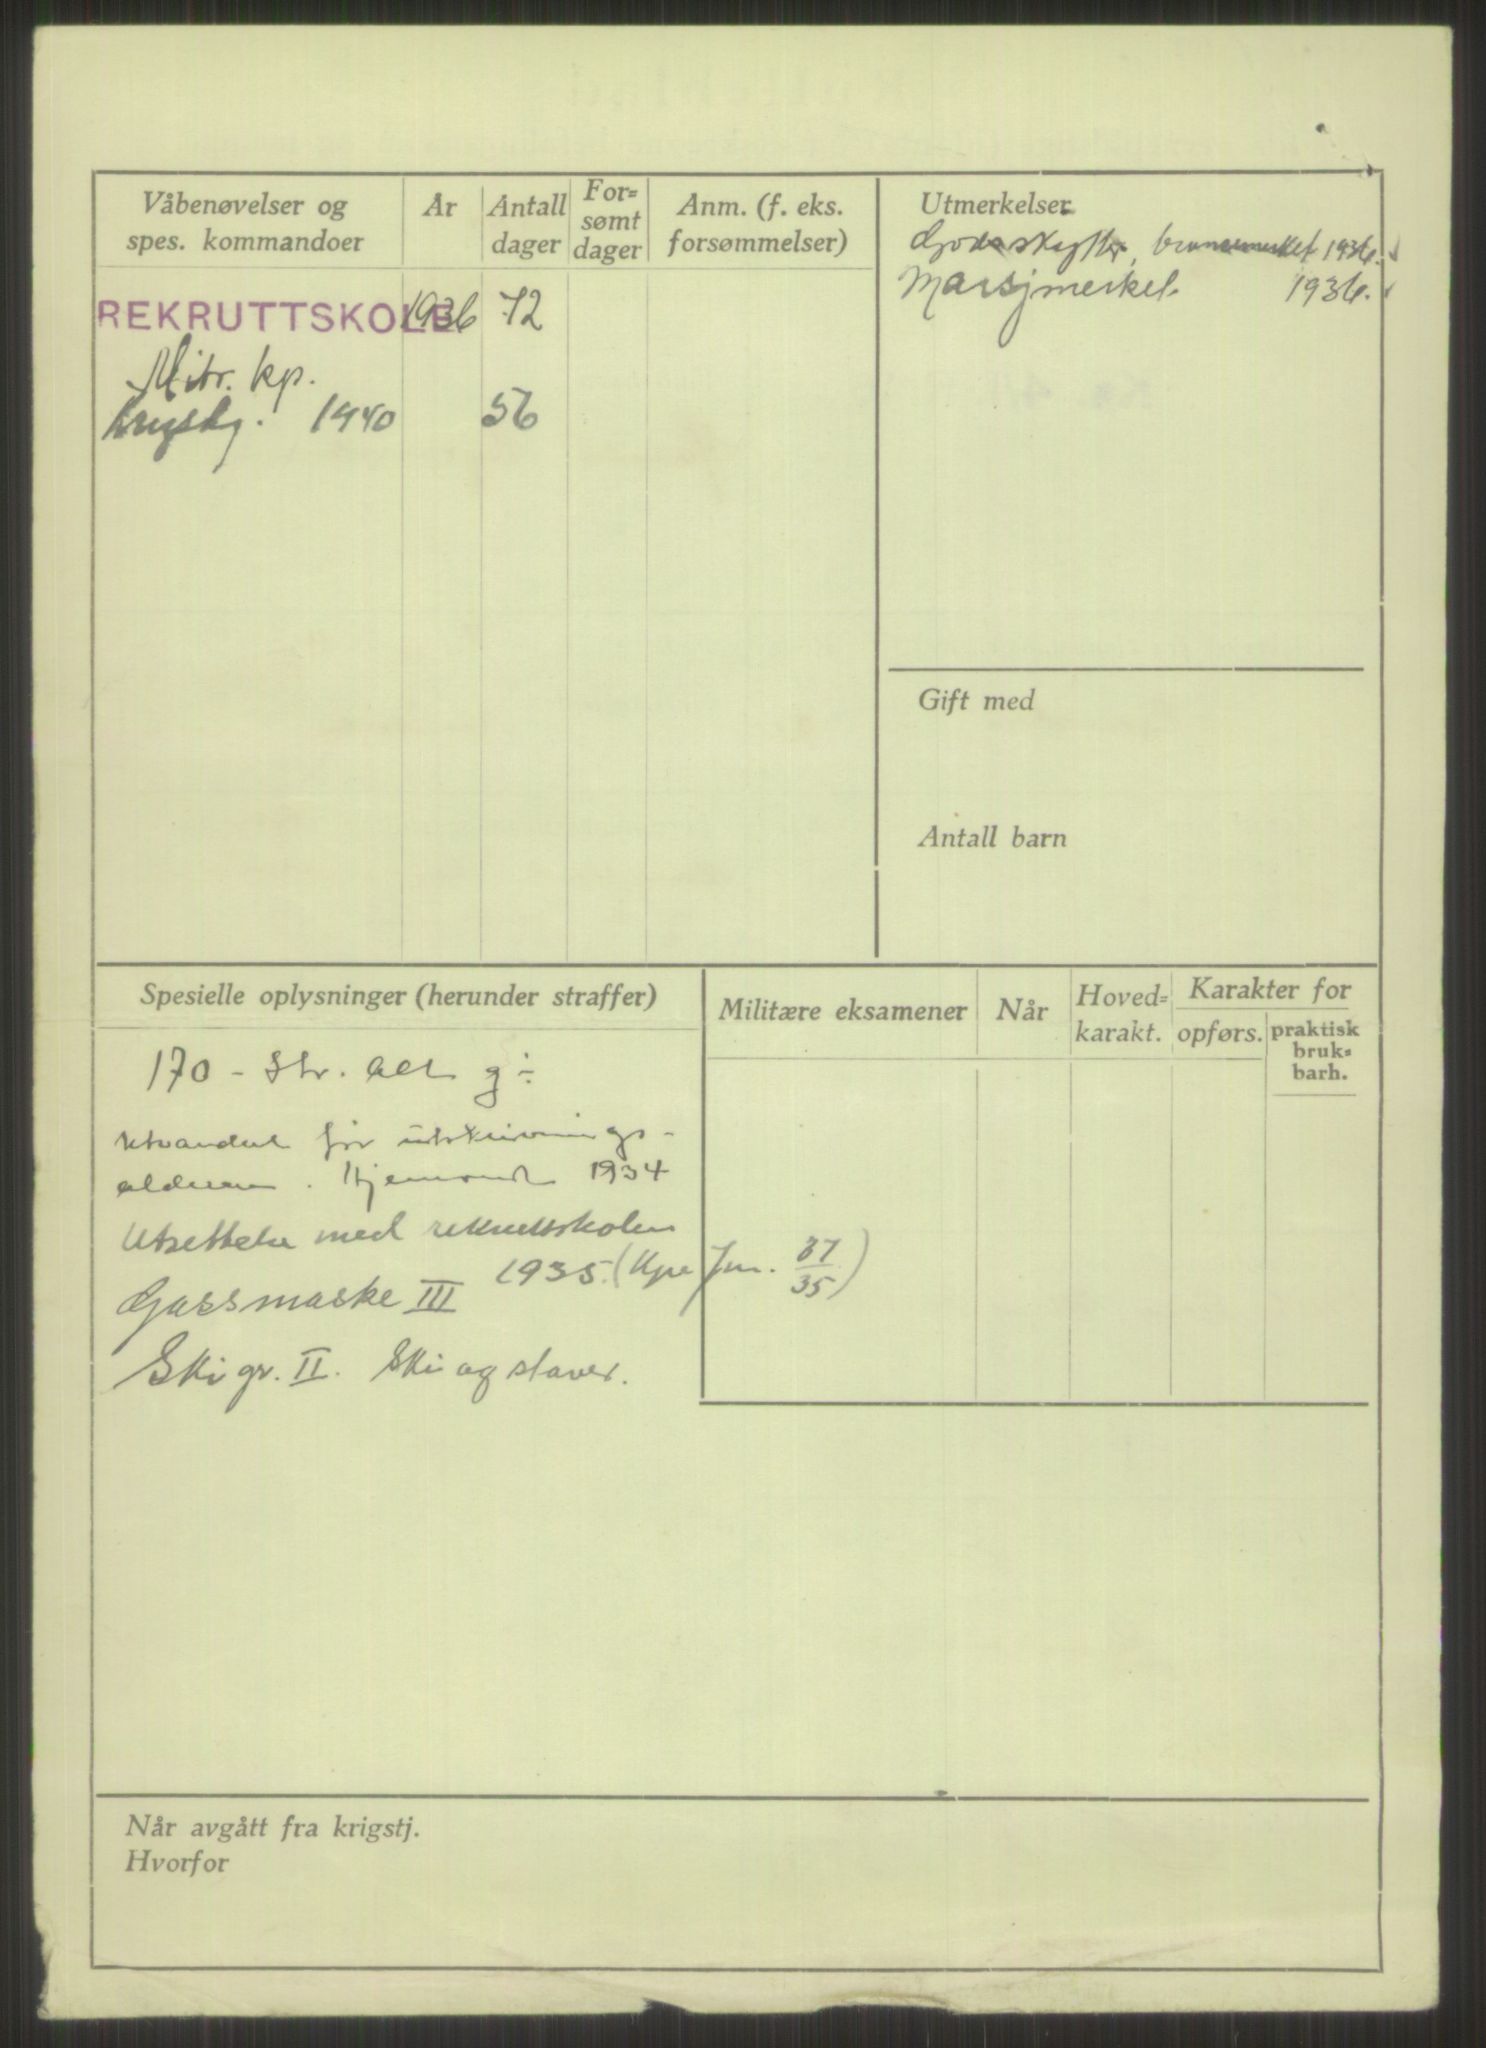 Våbenøvelser og
spes. kommandoer
År
Antall
dager
For=
sømt
dager
Anm. (f. eks.
forsømmelser)
REKRUTTSKOLE 1936 72
Mitr. kp.
1940 56
Utmerkelser
Godskytter, bronsemerket 1936.
Marsjmerket 1936.
Gift med
Antall barn
Spesielle oplysninger (herunder straffer)
170 - Str. alt g÷
Utvandret før utskrivnings-
alderen. Hjemvendt 1934
Utsettelse med rekruttskolen
1935. (Kpe Jnr. 37/35)
Gassmaske III
Ski gr. II. Ski og staver.
Militære eksamener
Når
Hoved=
karakt.
Karakter for
opførs.
praktisk
bruk=
barh.
Når avgått fra krigstj.
Hvorfor